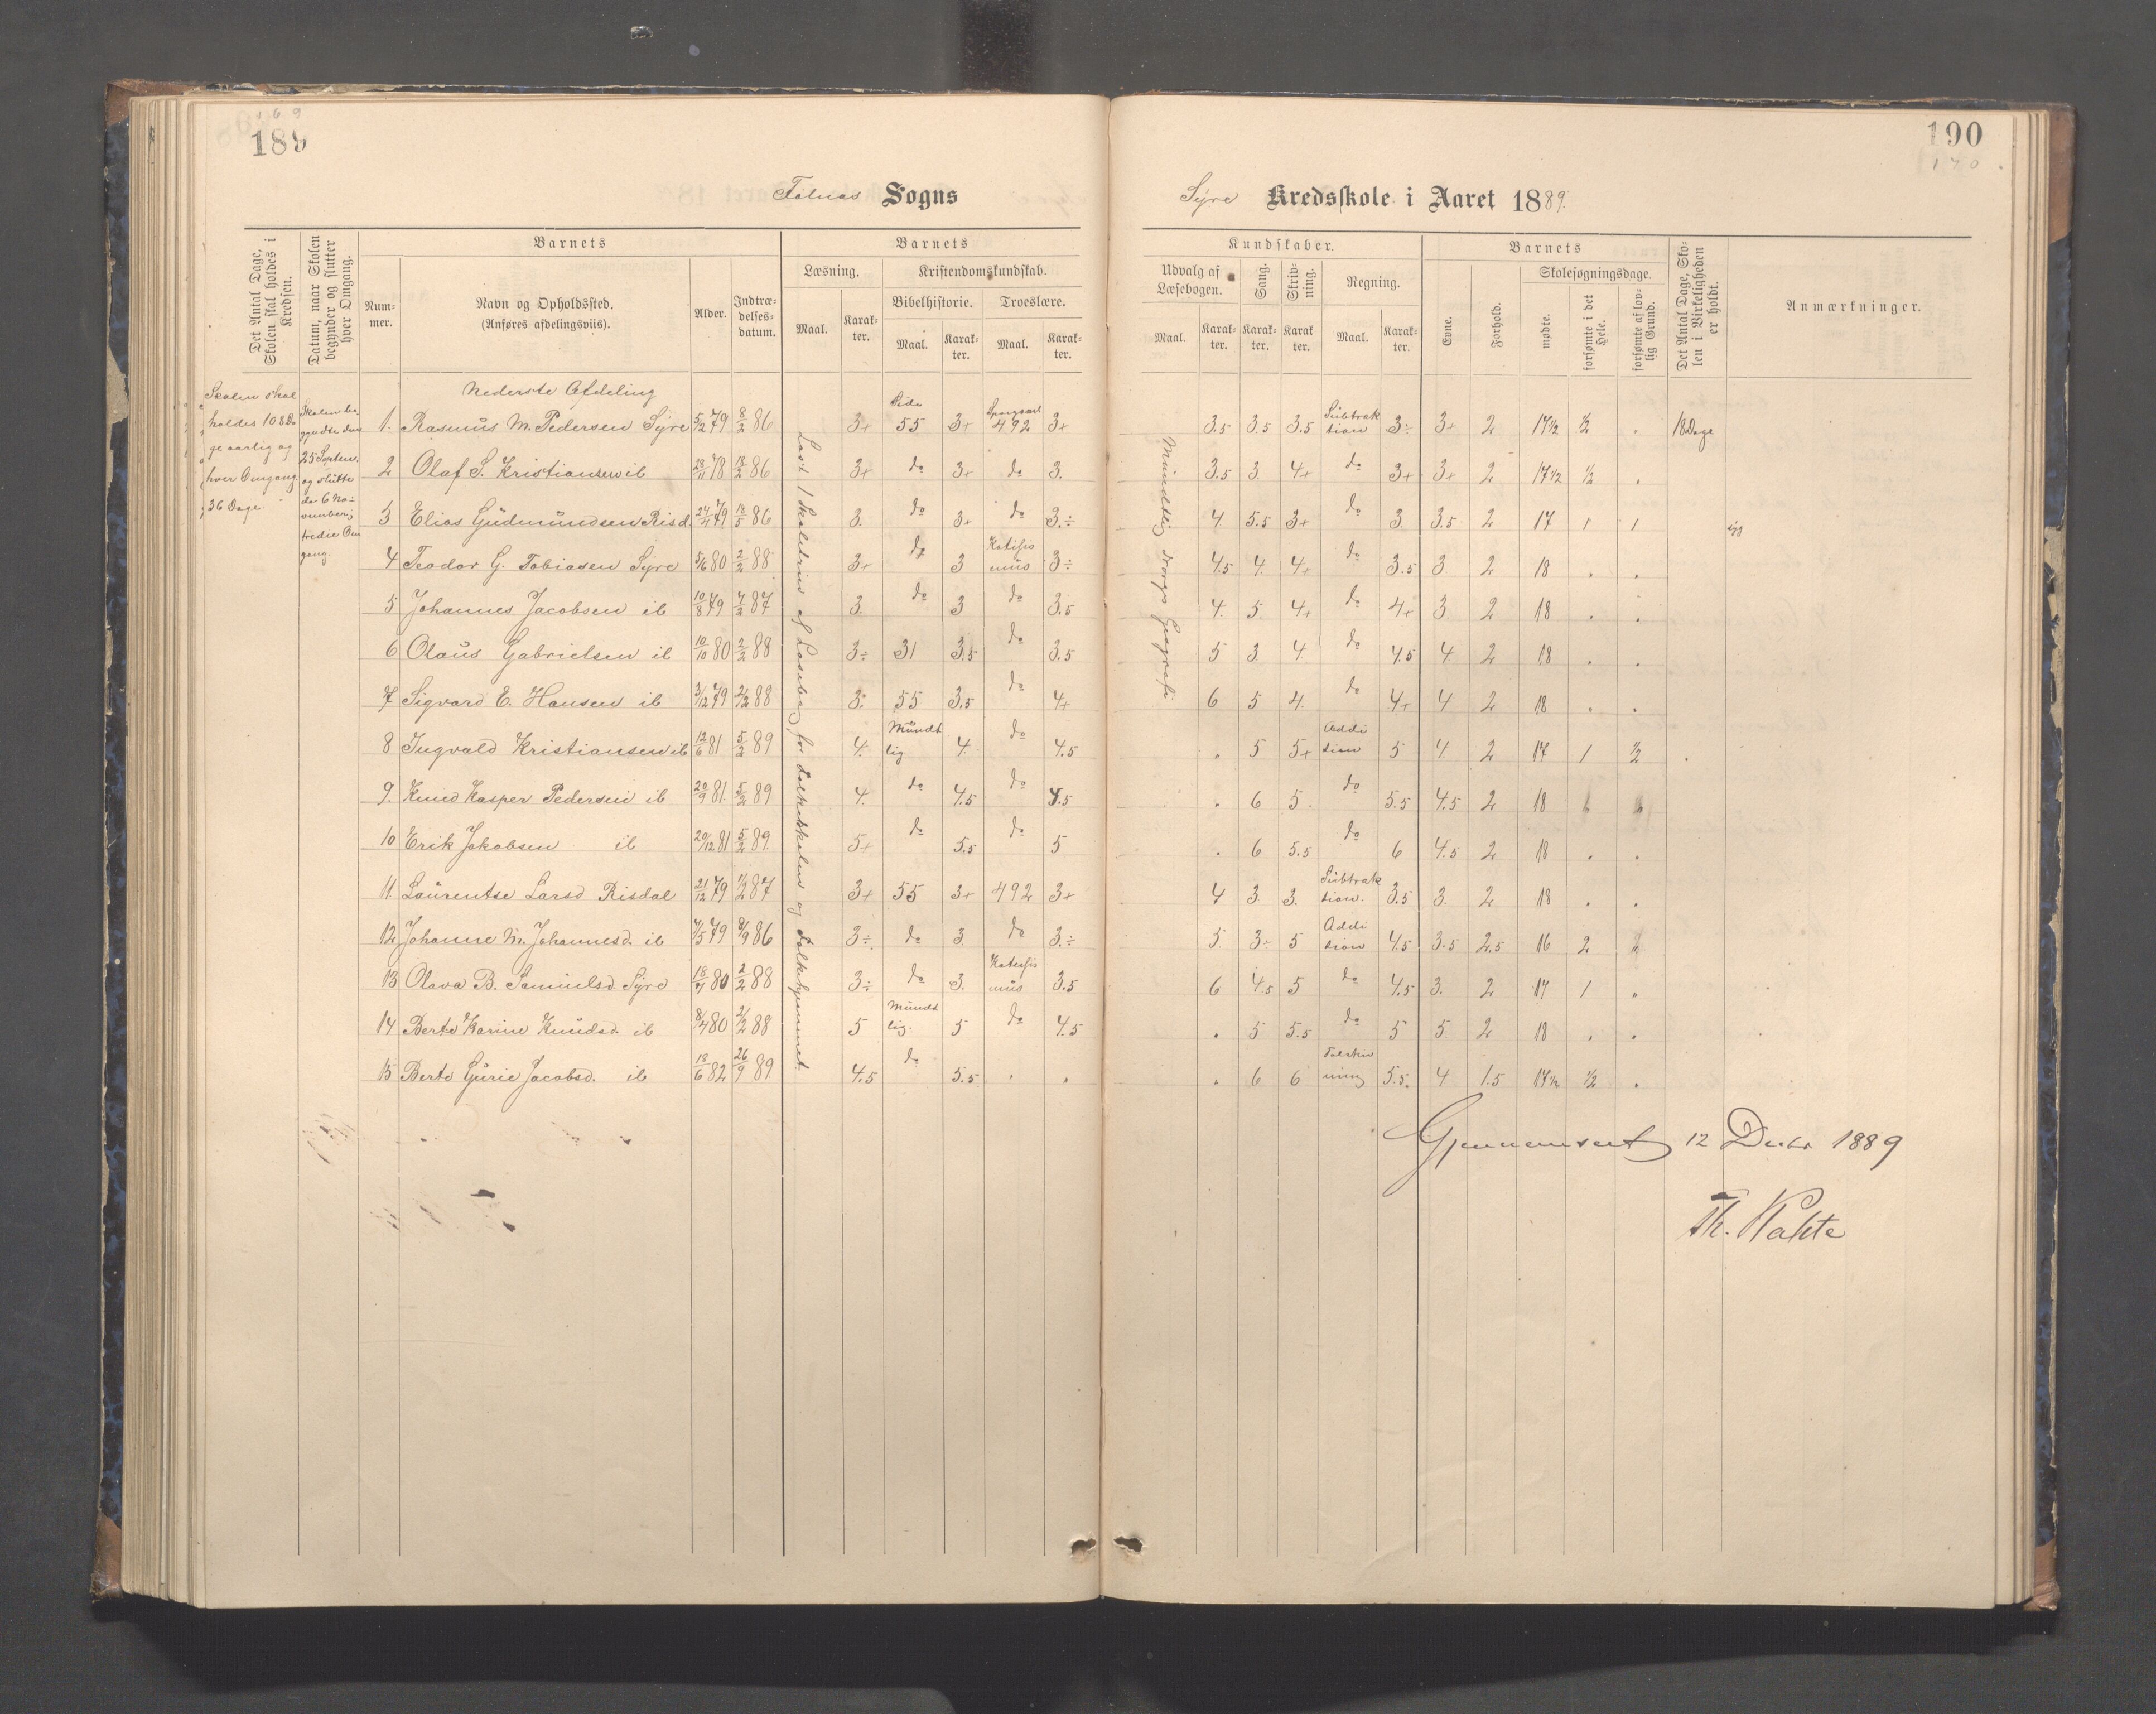 169
189
190
170
Falnæs Sogns
Syre Kredsskole i Aaret 1889.
Det Antal Dage, Skolen skal holdes i Kredsen.
Datum, naar Skolen begynder og slutter hver Omgang.
Barnets
Num-mer.
Navn og Opholdssted.
(Anføres afdelingsviis).
Alder.
Indtræ-delses-datum.
Barnets
Læsning.
Maal.
Karak-ter.
Kristendomskundskab.
Bibelhistorie.
Maal.
Karak-ter.
Troeslære.
Maal.
Karak-ter.
Kundskaber.
Udvalg af Læsebogen.
Maal.
Karak-ter.
Sang.
Karak-ter.
Skriv-ning.
Karak-ter.
Regning.
Maal.
Karak-ter.
Barnets
Evne.
Forhold.
Skolesøgningsdage.
mødte.
forsømte i det Hele.
forsømte af lov-lig Grund.
Det Antal Dage, Sko-len i Virkeligheden er holdt.
Anmærkninger.
Skolen skal
holdes 108 Da
ge aarlig og
hver Omgang
36 Dage
Skolen be
gyndte den
25 Septem.
og slutte
de 6 No-
vember;
tredie Om
gang.
Nederste Afdeling
Læst i Skolestuen af Læsebog for Folkeskolen og Folkehjemmet.
Mundtlig Norges Geografi
1. Rasmus M. Pedersen Syre 5/2 79 8/2 86 3+ Side 55 3+ Spørgsml 492 3+ 3.5 3.5 3.5 Subtrak tion 3÷ 3+ 2 17½ ½ . 18 Dage
2 Olaf S. Kristiansen ib 28/11 78 18/2 86 3+ do 3+ do 3. 3.5 3. 4+ do 3+ 3+ 2 17½ ½ .
3 Elias Gudmundsen Risd. 24/11 79 18/5 86 3. do 3+ do 3.÷ 4. 5.5 3+ do 3 3.5 2 17 1 1 syg
4 Teodor G. Tobiasen Syre 5/6 80 2/2 88 3+ do 3 Katekis mus 3÷ 4.5 4. 4+ do 3.5 3 2 18 . .
5 Johannes Jacobsen ib 10/8 79 7/2 87 3. do 3 do 3.5 4. 5. 4+ do 4+ 3 2 18 . .
6 Olaus Gabrielsen ib 10/10 80 2/2 88 3÷ 31 3.5 do 3.5 5 3 4. do 4.5 4 2 18 . .
7 Sigvard E. Hansen ib 3/12 79 2/2 88 3÷ 55 3.5 do 4+ 6 5 4. do 4+ 4 2 18 . .
8 Ingvald Kristiansen ib 12/6 81 5/2 89 4. Mundt lig 4. do 4.5 . 5 5+ Addi tion 5 4. 2 17 1 ½ .
9. Knud Kasper Pedersen ib 20/9 81. 5/2 89 4. do 4.5 do 4.5 . 6 5. do 5.5 4.5 2 18
10 Erik Jakobsen ib 20/12 81 5/2 89. 5+ do 5.5 do 5 . 6 5.5 do 6 4.5 2 18 . .
11. Laurentse Larsd Risdal 21/12 79 87 3+ 55 3+ 492 3+ 4 3 3. Subtrak tion. 3.5 3. 2 18 . .
12 Johanne M. Johannesd. ib 4/5 79 8/9 86 3÷ do 3. do 3.÷ 5. 3÷ 5 Addi tion 4.5 3.5 2.5 16 2 "
13 Olava B. Samuelsd. Syre 18/7 80 2/2 88 3÷ do 3. Katekis mus 3.5 6 4.5 5 do 4.5 3. 2 17 1 "
14 Berte Karine Knudsd. ib 8/4 80 2/2 88 5 Mundt lig. 5 do 4.5 . 5 5.5 do 5 5 2 18 . .
15 Berte Gurie Jacobsd. ib 18/6 82 26/9 89 4.5 do 5.5 . . . 6 6 Talskriv ning 5.5. 4 1.5 17½ ½ .
Gjennemseet 12 Decbr 1889